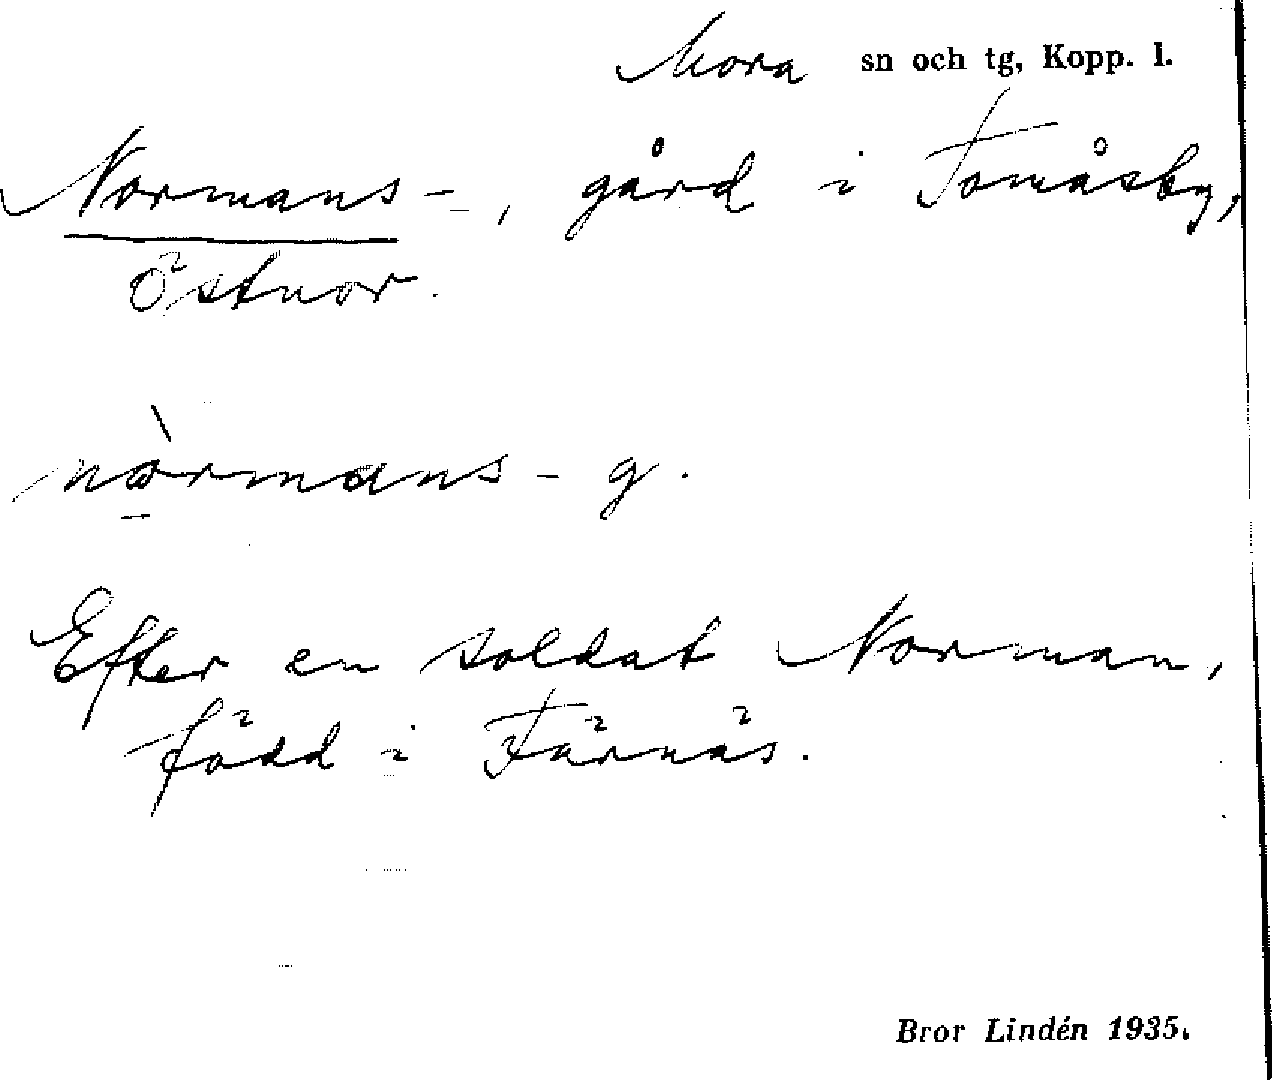 Mora sn och tg, Kopp. l.
Normans-, gård i Tomåsby,
Östnor.
nòrmans-g.
Efter en soldat Norman,
född i Färnäs.
Bror Lindén 1935.